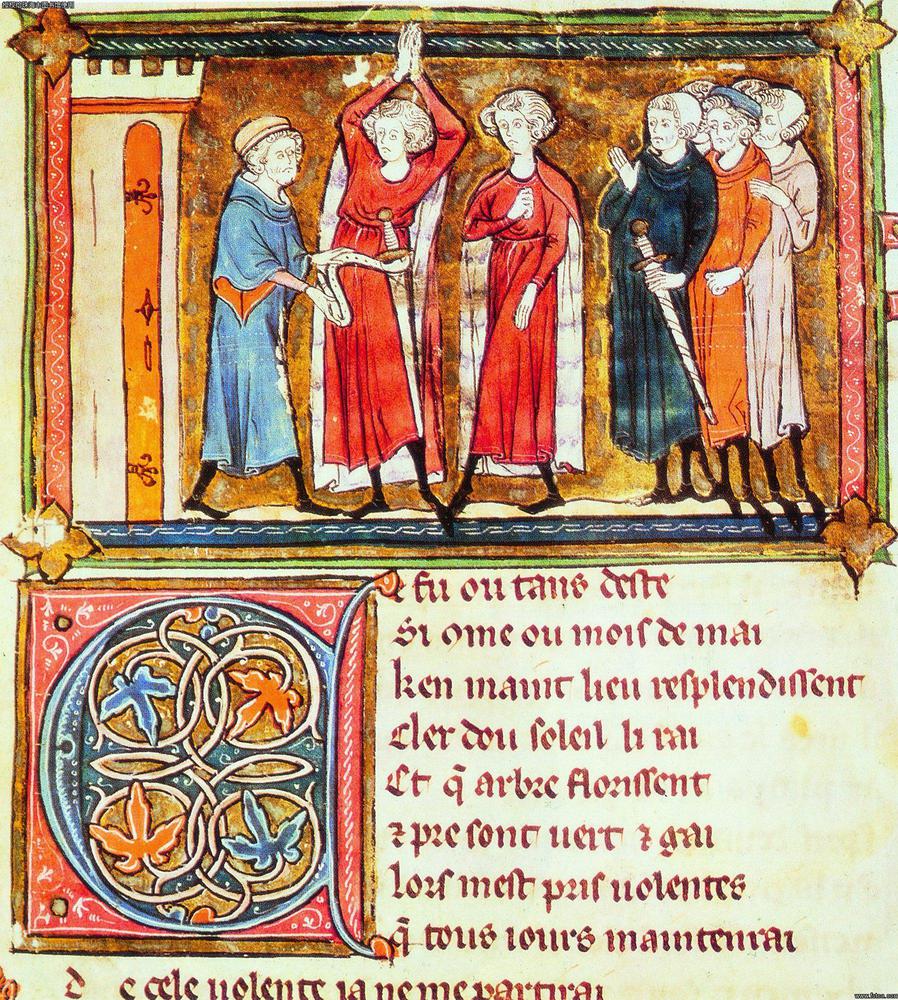 Ce fu ou tans deste
Si ome ou mois de mai
ken maint lieu resplendissent
cler dou soleil li rai
Et q̄ arbre florissent
⁊ pre sont uert ⁊ gai
lors mest pris uolentes
q̄ tous iours maintenrai
d e cele uolente ia ne me partirai
www.fotoe.com